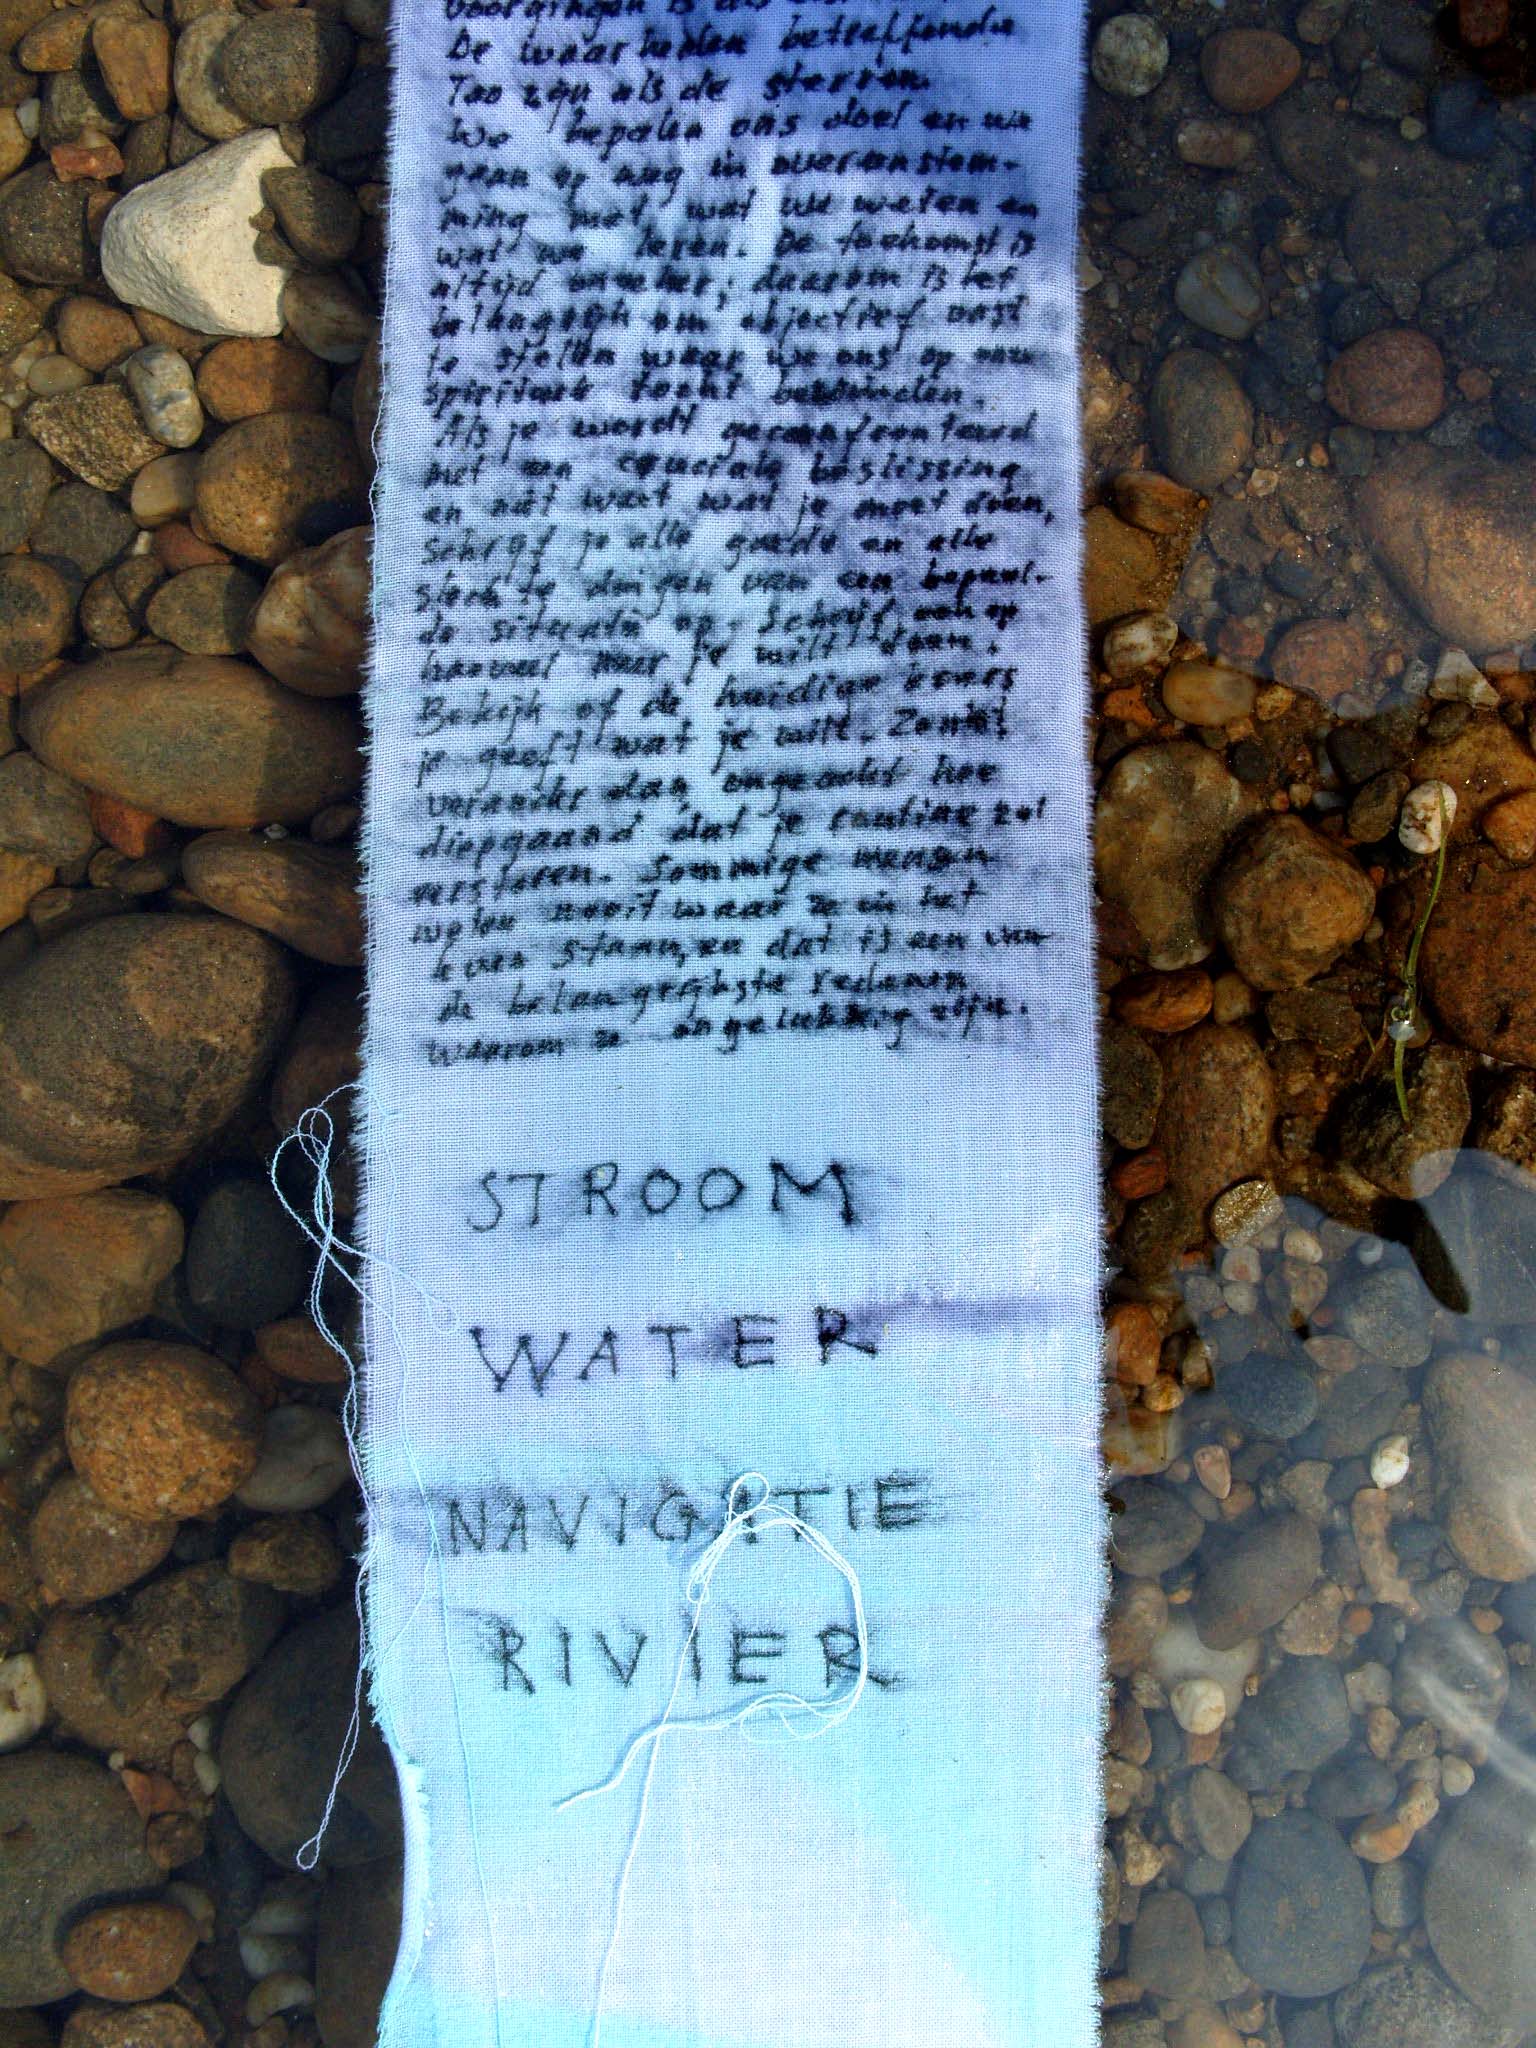 voorgingen is als
De waarheden betreffende
Tao zijn als de sterren.
We bepalen ons doel en we
gaan op weg in overeenstem-
ming met wat we weten en
wat we leren. De toekomst is
altijd onzeker; daarom is het
belangrijk om objectief vast
te stellen waar we ons op onze
spirituele tocht bevinden.
Als je wordt geconfronteerd
met een cruciale beslissing
en niet weet wat je moet doen,
schrijf je alle goede en alle
slechte dingen van een bepaal-
de situatie op. Schrijf ook op
hoeveel je wilt doen.
Bekijk of de huidige koers
je geeft wat je wilt. Zoniet
verander dan, ongeacht hoe
diepgaand dat je routine zal
verstoren. Sommige mensen
weten nooit waar ze in het
leven staan, en dat is een van
de belangrijkste redenen
waarom ze ongelukkig zijn.
STROOM
WATER
NAVIGATIE
RIVIER